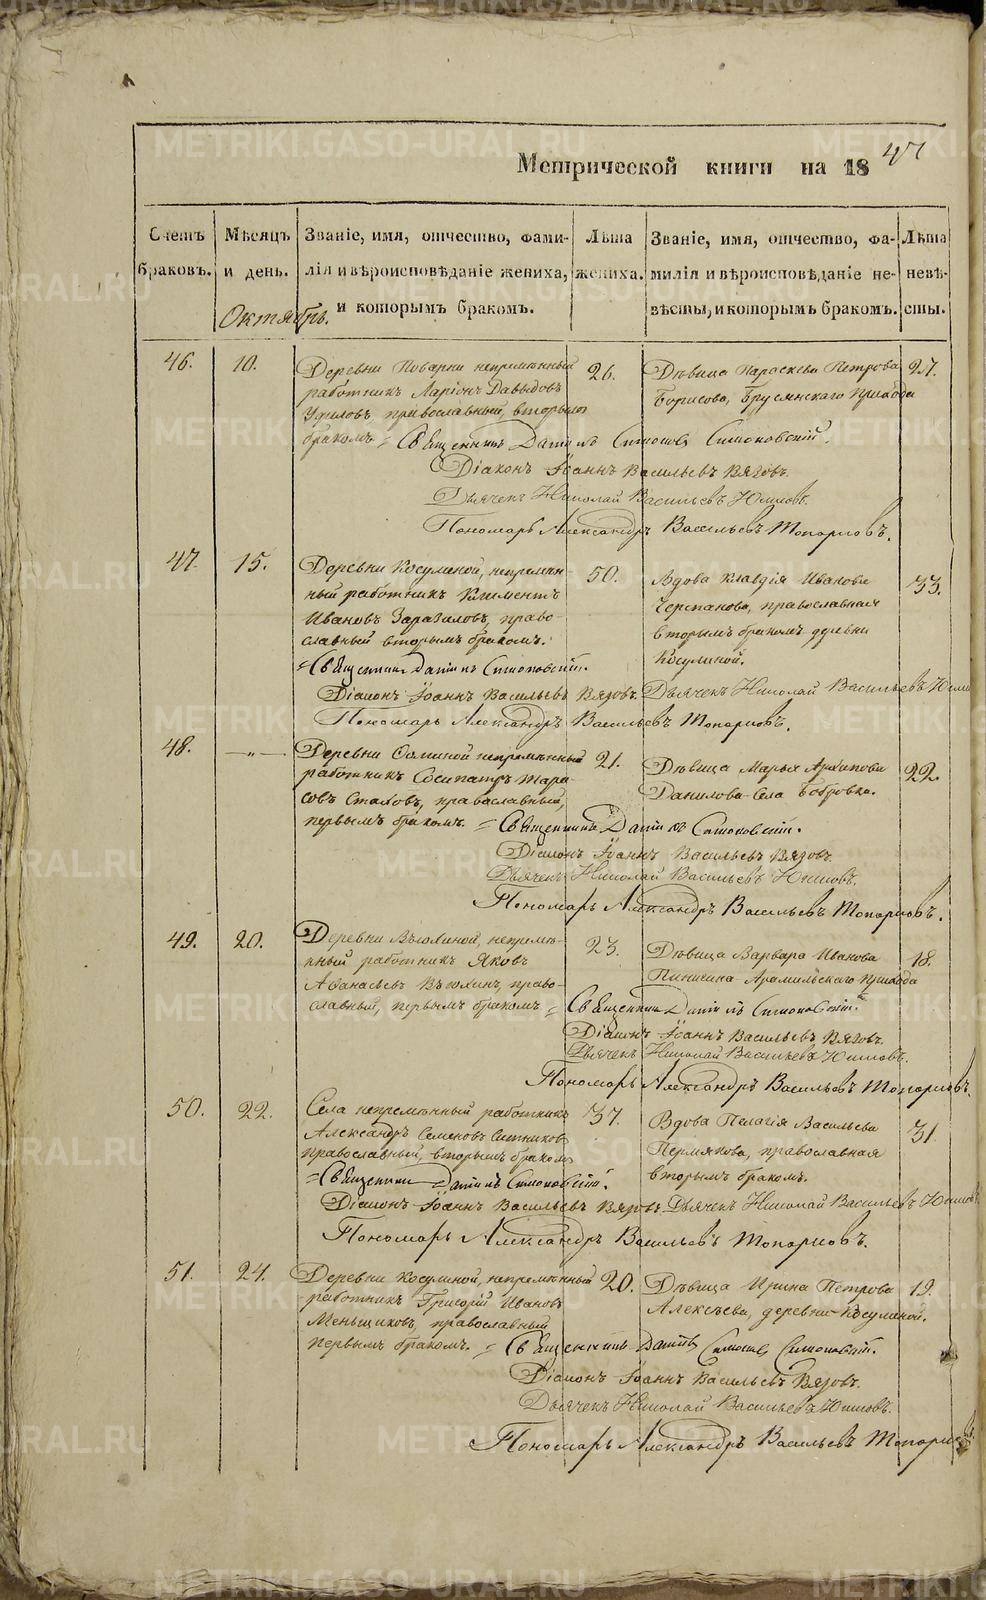 Метрической книги на 1847
Счетъ браковъ.
Мѣсяцъ и день.
Званіе, имя, отчество, фами-
лія и вѣроисповѣданіе жениха,
и которымъ бракомъ.
Лѣта жениха.
Званіе, имя, отчество, фа-
милія и вѣроисповѣданіе не-
вѣсты, и которымъ бракомъ.
Лѣта невѣ-
сты.
Октябрь.
46. 10.
Деревни Поварни непремѣнный
работникъ Ларіонъ Давыдовъ
православный, вторымъ
бракомъ
26.
Дѣвица Параскева Петрова
Борисова, Брусянскаго прихода
27.
Священникъ Симоновскій.
Діаконъ Іоаннъ Васильевъ Вязовъ.
Дьячекъ Николай Васильевъ
Пономарь Александръ Васильевъ Топорковъ.
47. 15.
Деревни Косулиной, непремѣн-
ный работникъ Климентъ
Ивановъ право-
славный вторымъ бракомъ.
50.
Вдова Клавдія Иванова
Черепанова, православная
вторымъ бракомъ деревни
Косулиной.
33.
Священникъ Симоновскій.
Діаконъ Іоаннъ Васильевъ Вязовъ. Дьячекъ Николай Васильевъ
Пономарь Александръ Васильевъ Топорковъ.
48. —„—
Деревни непремѣнный
работникъ Сосипатръ Тара-
совъ православный,
первымъ бракомъ.
21.
Дѣвица Марья Архипова
Данилова Села Бобровки.
22.
Священникъ Симоновскій.
Діаконъ Іоаннъ Васильевъ Вязовъ.
Дьячекъ Николай Васильевъ
Пономарь Александръ Васильевъ Топорковъ.
49. 20.
Деревни непремѣ-
нный работникъ Яковъ
Афанасьевъ право-
славный, первымъ бракомъ
23.
Дѣвица Варвара Иванова
Арамильскаго прихода
18.
Священникъ Симоновскій.
Діаконъ Іоаннъ Васильевъ Вязовъ.
Дьячекъ Николай Васильевъ
Пономарь Александръ Васильевъ Топорковъ.
50. 22.
Села непремѣнный работникъ
Александръ Семеновъ Ситниковъ
православный, вторымъ бракомъ
37.
Вдова Пелагія Васильева
Пермякова, православная
вторымъ бракомъ.
31.
Священникъ Симоновскій.
Діаконъ Іоаннъ Васильевъ Вязовъ. Дьячекъ Николай Васильевъ
Пономарь Александръ Васильевъ Топорковъ.
51. 24.
Деревни Косулиной, непремѣнный
работникъ Григорій Ивановъ
Меньщиковъ, православный
первымъ бракомъ.
20.
Дѣвица Ирина Петрова
Алексѣева, деревни Косулиной.
19.
Священникъ Симоновскій.
Діаконъ Іоаннъ Васильевъ Вязовъ.
Дьячекъ Николай Васильевъ
Пономарь Александръ Васильевъ
METRIKI.GASO-URAL.RU